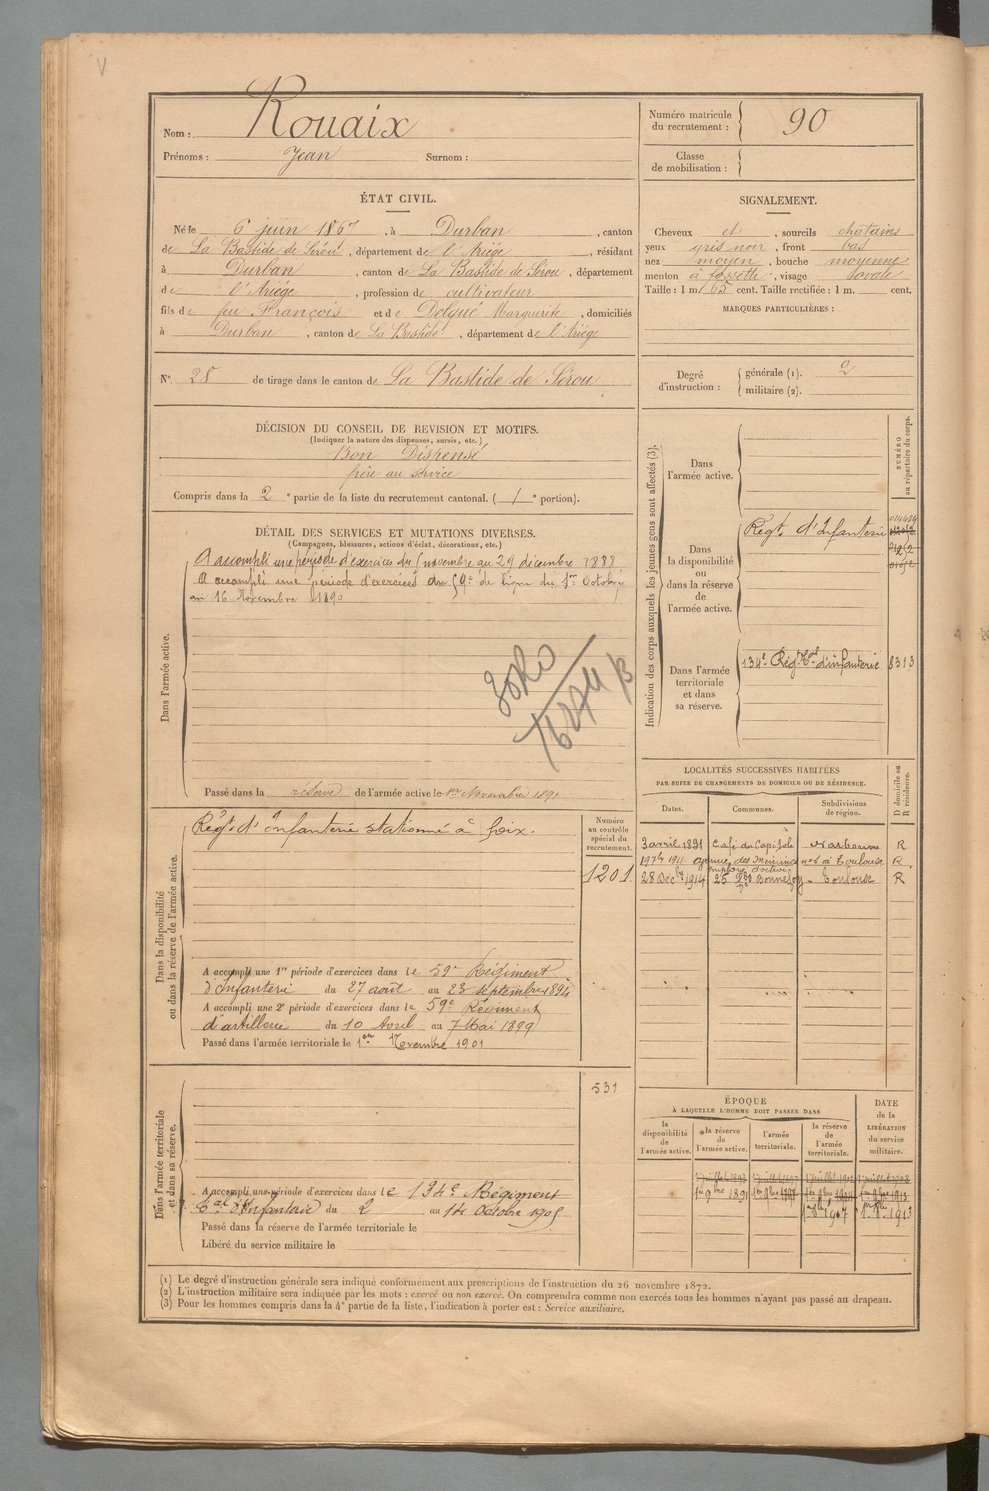 V
Nom : Rouaix
Prénoms : Jean Surnom :
Numéro matricule du recrutement : 90
Classe de mobilisation :
ÉTAT CIVIL.
Né le 6 juin 1867, à Durban, canton
de La Bastide de Sérou, département de l'Ariége, résidant
à Durban, canton de La Bastide de Sérou, département
de l'Ariége, profession de cultivateur
fils de feu François et de Delqué Marguerite, domiciliés
à Durban, canton de La Bastide, département de l'Ariége
SIGNALEMENT.
Cheveux et, sourcils châtains
yeux gris noir, front bas
nez moyen, bouche moyenne
menton à fossette, visage ovale
Taille : 1 m. 65 cent. Taille rectifiée : 1 m. cent.
MARQUES PARTICULIÈRES :
N° 28 de tirage dans le canton de La Bastide de Sérou
Degré d'instruction : générale (1). 2
militaire (2).
DÉCISION DU CONSEIL DE REVISION ET MOTIFS.
(Indiquer la nature des dispenses, sursis, etc.)
Bon Dispensé
frère au service
Compris dans la 2e partie de la liste du recrutement cantonal. (1e portion).
DÉTAIL DES SERVICES ET MUTATIONS DIVERSES.
(Campagnes, blessures, actions d'éclat, décorations, etc.)
Dans l'armée active.
A accompli une période d'exercices du novembre au 29 décembre 1888
A accompli une période d'exercices du 59e de ligne du 1er Octobre
au 16 Novembre 1890
Passé dans la réserve de l'armée active le 1er Novembre 1891
Indication des corps auxquels les jeunes gens sont affectés (3).
NUMÉRO au répertoire du corps.
Dans l'armée active.
Dans la disponibilité ou dans la réserve de l'armée active.
Régt. d'Infanterie
Dans l'armée territoriale et dans sa réserve.
134e Régt Tal d'infanterie 8313
Dans la disponibilité ou dans la réserve de l'armée active.
Régt. d'Infanterie stationné à Foix.
Numéro au contrôle spécial du recrutement.
1201
A accompli une 1re période d'exercices dans le 59e Régiment
d'Infanterie du 27 août au 23 septembre 1894
A accompli une 2e période d'exercices dans le 59e Régiment
d'artillerie du 10 Avril au 7 Mai 1899
Passé dans l'armée territoriale le 1er Novembre 1901
LOCALITÉS SUCCESSIVES HABITÉES
PAR SUITE DE CHANGEMENTS DE DOMICILE OU DE RÉSIDENCE.
Dates. Communes. Subdivisions de région. D domicile ou R résidence.
3 avril 1891 Café du Capitole à Narbonne R
à Toulouse R
28 Dec 1914 Bonnefoy - Toulouse R
Dans l'armée territoriale et dans sa réserve.
531
A accompli une période d'exercices dans le 134e Régiment
Tal d'Infanterie du 2 au 14 Octobre 1905
Passé dans la réserve de l'armée territoriale le
Libéré du service militaire le
ÉPOQUE
À LAQUELLE L'HOMME DOIT PASSER DANS
la disponibilité de l'armée active. la réserve de l'armée active. l'armée territoriale. la réserve de l'armée territoriale.
DATE de la LIBÉRATION du service militaire.
(1) Le degré d'instruction générale sera indiqué conformément aux prescriptions de l'instruction du 26 novembre 1872.
(2) L'instruction militaire sera indiquée par les mots : exercé ou non exercé. On comprendra comme non exercés tous les hommes n'ayant pas passé au drapeau.
(3) Pour les hommes compris dans la 4e partie de la liste, l'indication à porter est : Service auxiliaire.